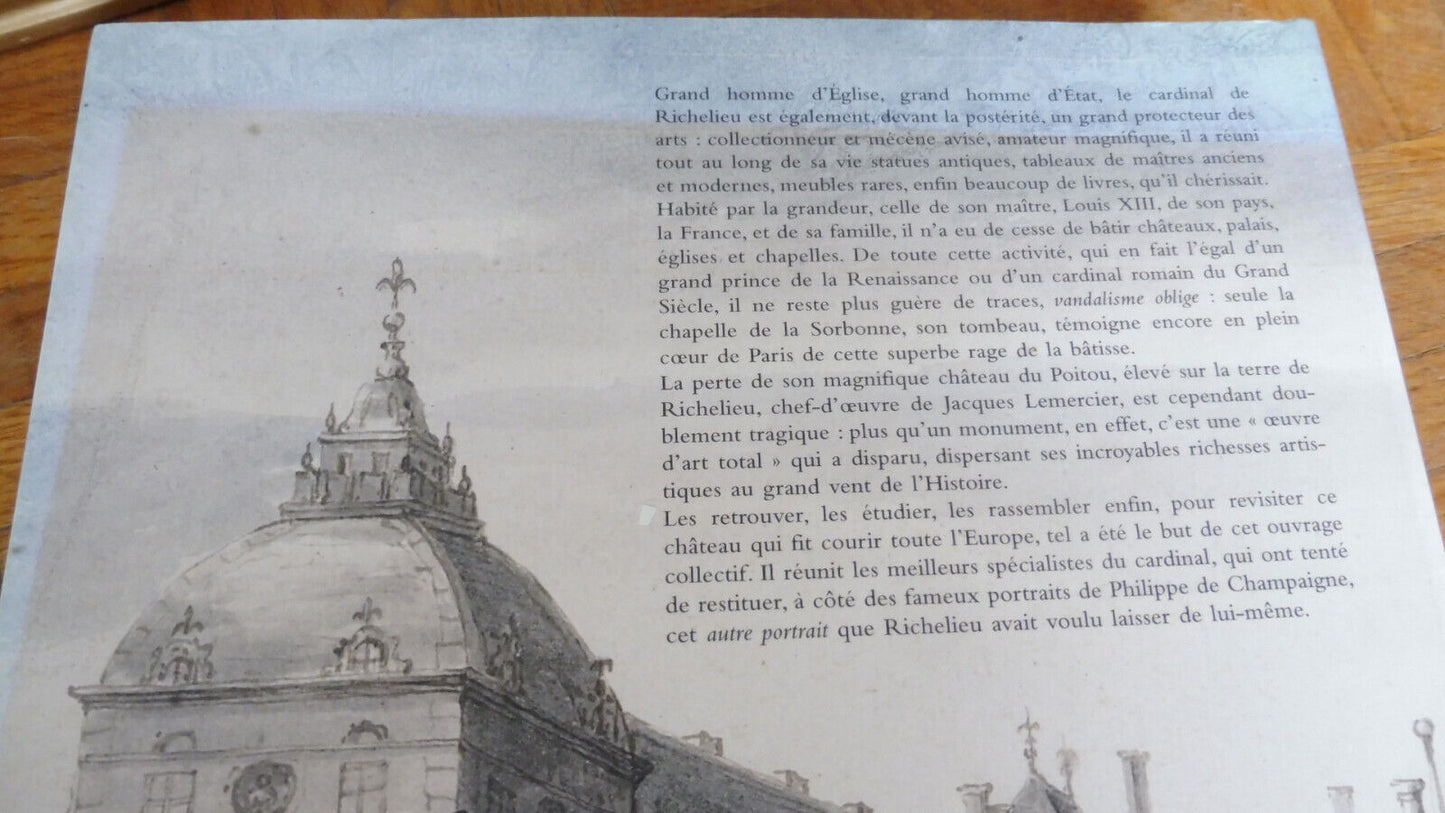 Grand homme d'Église, grand homme d'État, le cardinal de
Richelieu est également, devant la postérité, un grand protecteur des
arts : collectionneur et mécène avisé, amateur magnifique, il a réuni
tout au long de sa vie statues antiques, tableaux de maîtres anciens
et modernes, meubles rares, enfin beaucoup de livres, qu'il chérissait.
Habité par la grandeur, celle de son maître, Louis XIII, de son pays,
la France, et de sa famille, il n'a eu de cesse de bâtir châteaux, palais,
églises et chapelles. De toute cette activité, qui en fait l'égal d'un
grand prince de la Renaissance ou d'un cardinal romain du Grand
Siècle, il ne reste plus guère de traces, vandalisme oblige : seule la
chapelle de la Sorbonne, son tombeau, témoigne encore en plein
cœur de Paris de cette superbe rage de la bâtisse.
La perte de son magnifique château du Poitou, élevé sur la terre de
Richelieu, chef-d'œuvre de Jacques Lemercier, est cependant dou-
blement tragique : plus qu'un monument, en effet, c'est une « œuvre
d'art total » qui a disparu, dispersant ses incroyables richesses artis-
tiques au grand vent de l'Histoire.
Les retrouver, les étudier, les rassembler enfin, pour revisiter ce
château qui fit courir toute l'Europe, tel a été le but de cet ouvrage
collectif. Il réunit les meilleurs spécialistes du cardinal, qui ont tenté
de restituer, à côté des fameux portraits de Philippe de Champaigne,
cet autre portrait que Richelieu avait voulu laisser de lui-même.